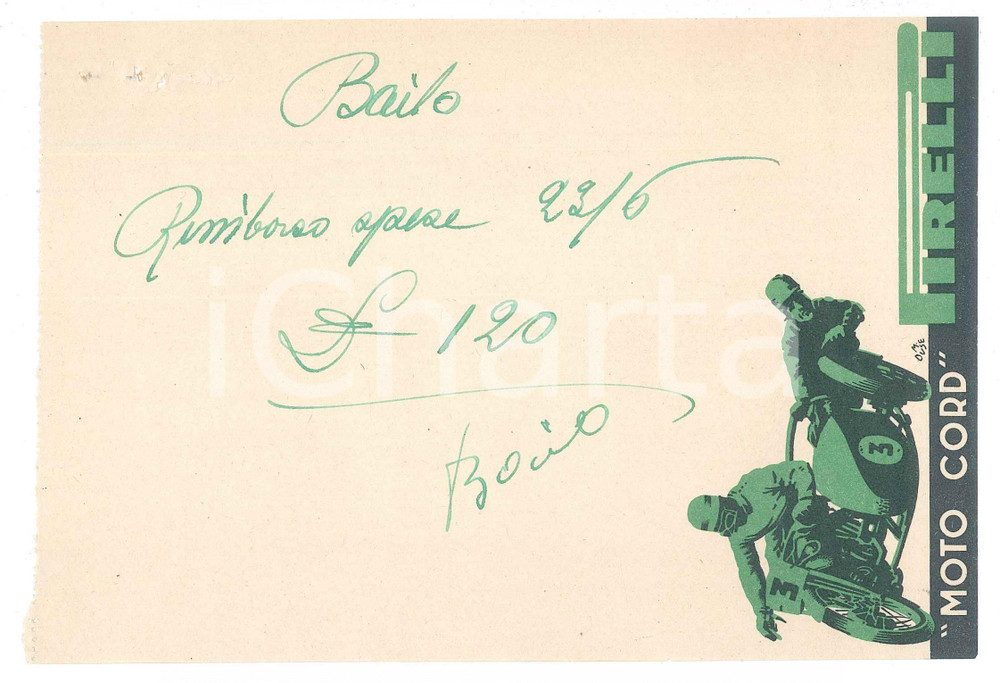 Bailo
Rimborso spese 23/6
£ 120
Bailo
PIRELLI
"MOTO CORD"
3
3
iCharta